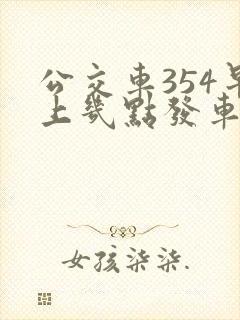 公交車354早
上幾點發車
女孩柒柒.